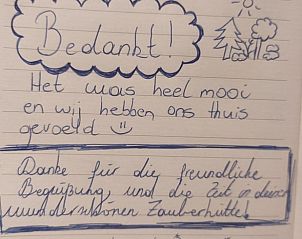 Bedankt!
Het was heel mooi
en wij hebben ons thuis
gevoeld
Danke für die freundliche
Begrüßung und die Zeit in deiner
wunderschönen Zauberhütte!